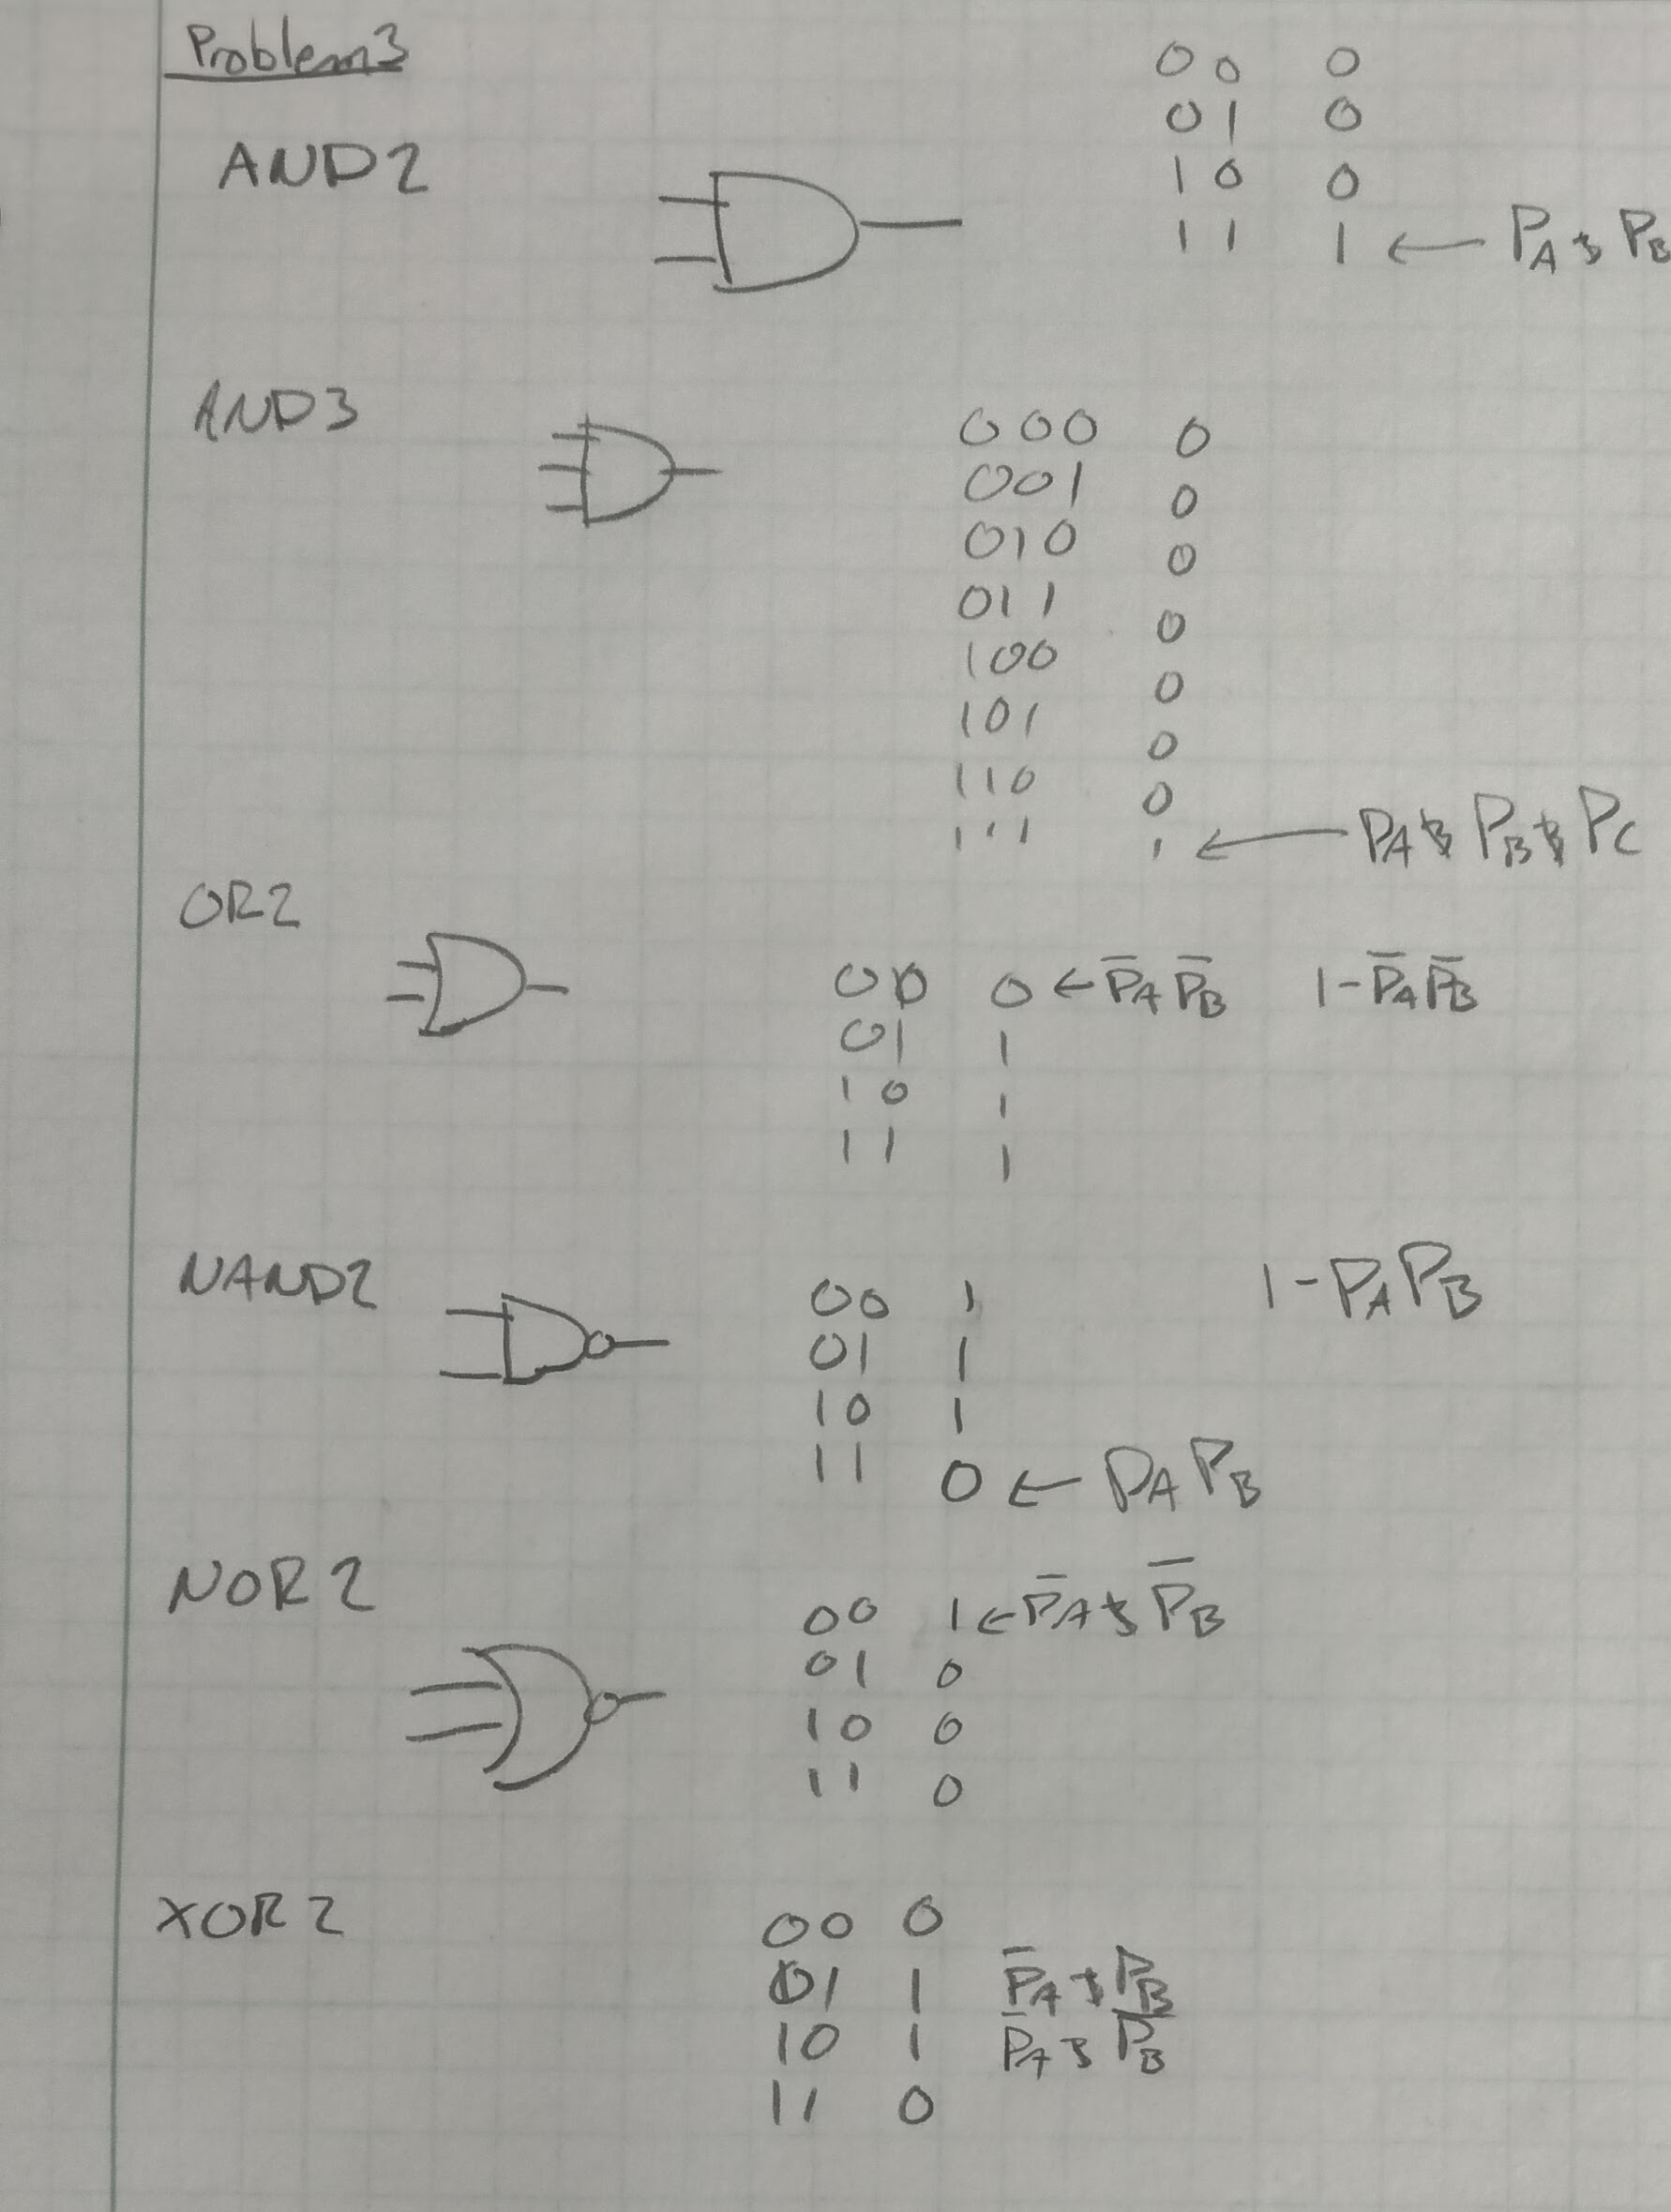 Problem3
0 0 0
0 1 0
AND2
1 0 0
1 1 1 ← PA & PB
AND3
0 0 0 0
0 0 1 0
0 1 0 0
0 1 1 0
1 0 0 0
1 0 1 0
1 1 0 0
1 1 1 1 ← PA & PB & PC
OR2
0 0 0 ← P̅A P̅B 1-P̅A P̅B
0 1 1
1 0 1
1 1 1
NAND2
0 0 1 1-PA PB
0 1 1
1 0 1
1 1 0 ← PA PB
NOR2
0 0 1 ← P̅A & P̅B
0 1 0
1 0 0
1 1 0
XOR2
0 0 0
0 1 1 P̅A & PB
1 0 1 P̅A & P̅B
1 1 0